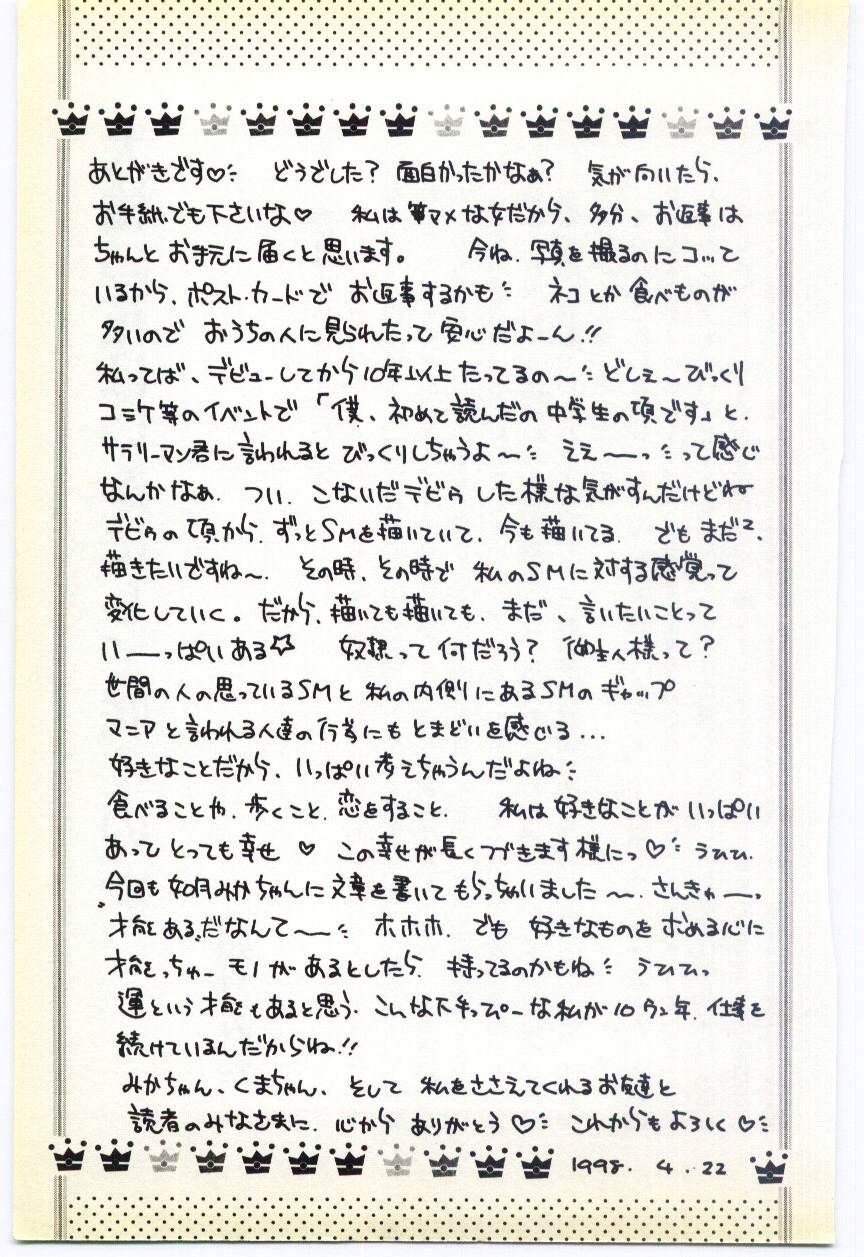 あとがきです♡ どうでした? 面白かったかなぁ? 気が向いたら、
お手紙でも下さいな♡ 私は筆マメな女だから、多分、お返事は
ちゃんとお手元に届くと思います。 今ね、写真を撮るのにコッて
いるから、ポスト・カードで お返事するかも ネコとか食べものが
多いので おうちの人に見られたって安心だよーん!!
私ってば、デビューしてから10年以上たってるの〜 どしぇ〜びっくり
コミケ等のイベントで「僕、初めて読んだの中学生の頃です」と、
サラリーマン君に言われると びっくりしちゃうよ〜 ええーーっ って感じ
なんかなぁ、つい、こないだデビゥした様な気がすんだけどねー
デビゥの頃から、ずっとSMを描いていて、今も描いてる。でもまだ2、
描きたいですね〜、その時、その時で 私のSMに対する感覚って
変化していく。だから、描いても描いても、まだ、言いたいことって
いーーっぱいある☆ 奴隷って何だろう? 御主人様って?
世間の人の思っているSMと 私の内側にあるSMのギャップ
マニアと言われる人達の行為にも とまどいを感じる...
好きなことだから、いっぱい考えちゃうんだよね
食べることや、歩くこと、恋をすること、 私は好きなことがいっぱい
あって とっても幸せ ♡ この幸せが長くつづきます様にっ♡ うひひ、
今回も如月みかちゃんに文章を書いてもらっちゃいました〜、さんきゅーっ
"才能ある"だなんて〜 ホホホ、でも 好きなものを求める心に
才能っちゃー モノがあるとしたら、持ってるのかもね うひひっ
運という才能もあると思う、こんな下手っぴーな私が10ウン年、仕事を
続けているんだからね!!
みかちゃん、くまちゃん、そして 私をささえてくれるお友達と
読者のみなさまに、心から ありがとう♡ これからもよろしく♡
1998. 4. 22